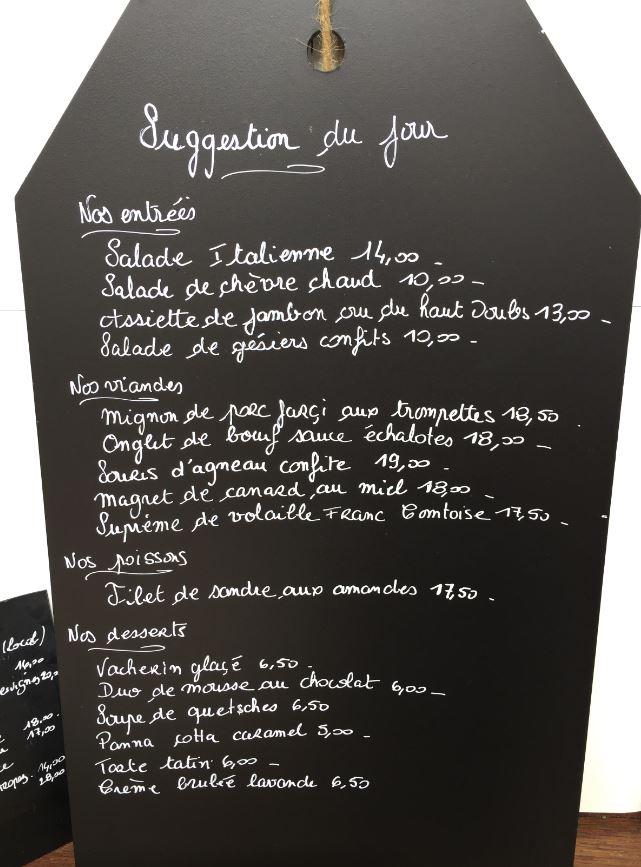 Suggestion du jour
Nos entrées
Salade Italienne 14,00 -
Salade de chèvre chaud 10,00 -
Assiette de jambon cru du haut Doubs 13,00 -
Salade de gésiers confits 10,00 -
Nos viandes
Mignon de porc farçi aux trompettes 18,50 .
Onglet de bœuf sauce échalotes 18,00 -
Souris d'agneau confite 19,00 .
Magret de canard au miel 18,00 -
Suprème de volaille Franc Comtoise 17,50 -
Nos poissons
Filet de sandre aux amandes 17,50 .
Nos desserts
Vacherin glaçé 6,50 .
Duo de mousse au chocolat 6,00 -
Soupe de quetsches 6,50
Panna cotta caramel 5,00 -
Tarte tatin 6,00 -
Crème brulée lavande 6,50
(local)
14,00
18,00 .
17,00
14,00
28,00